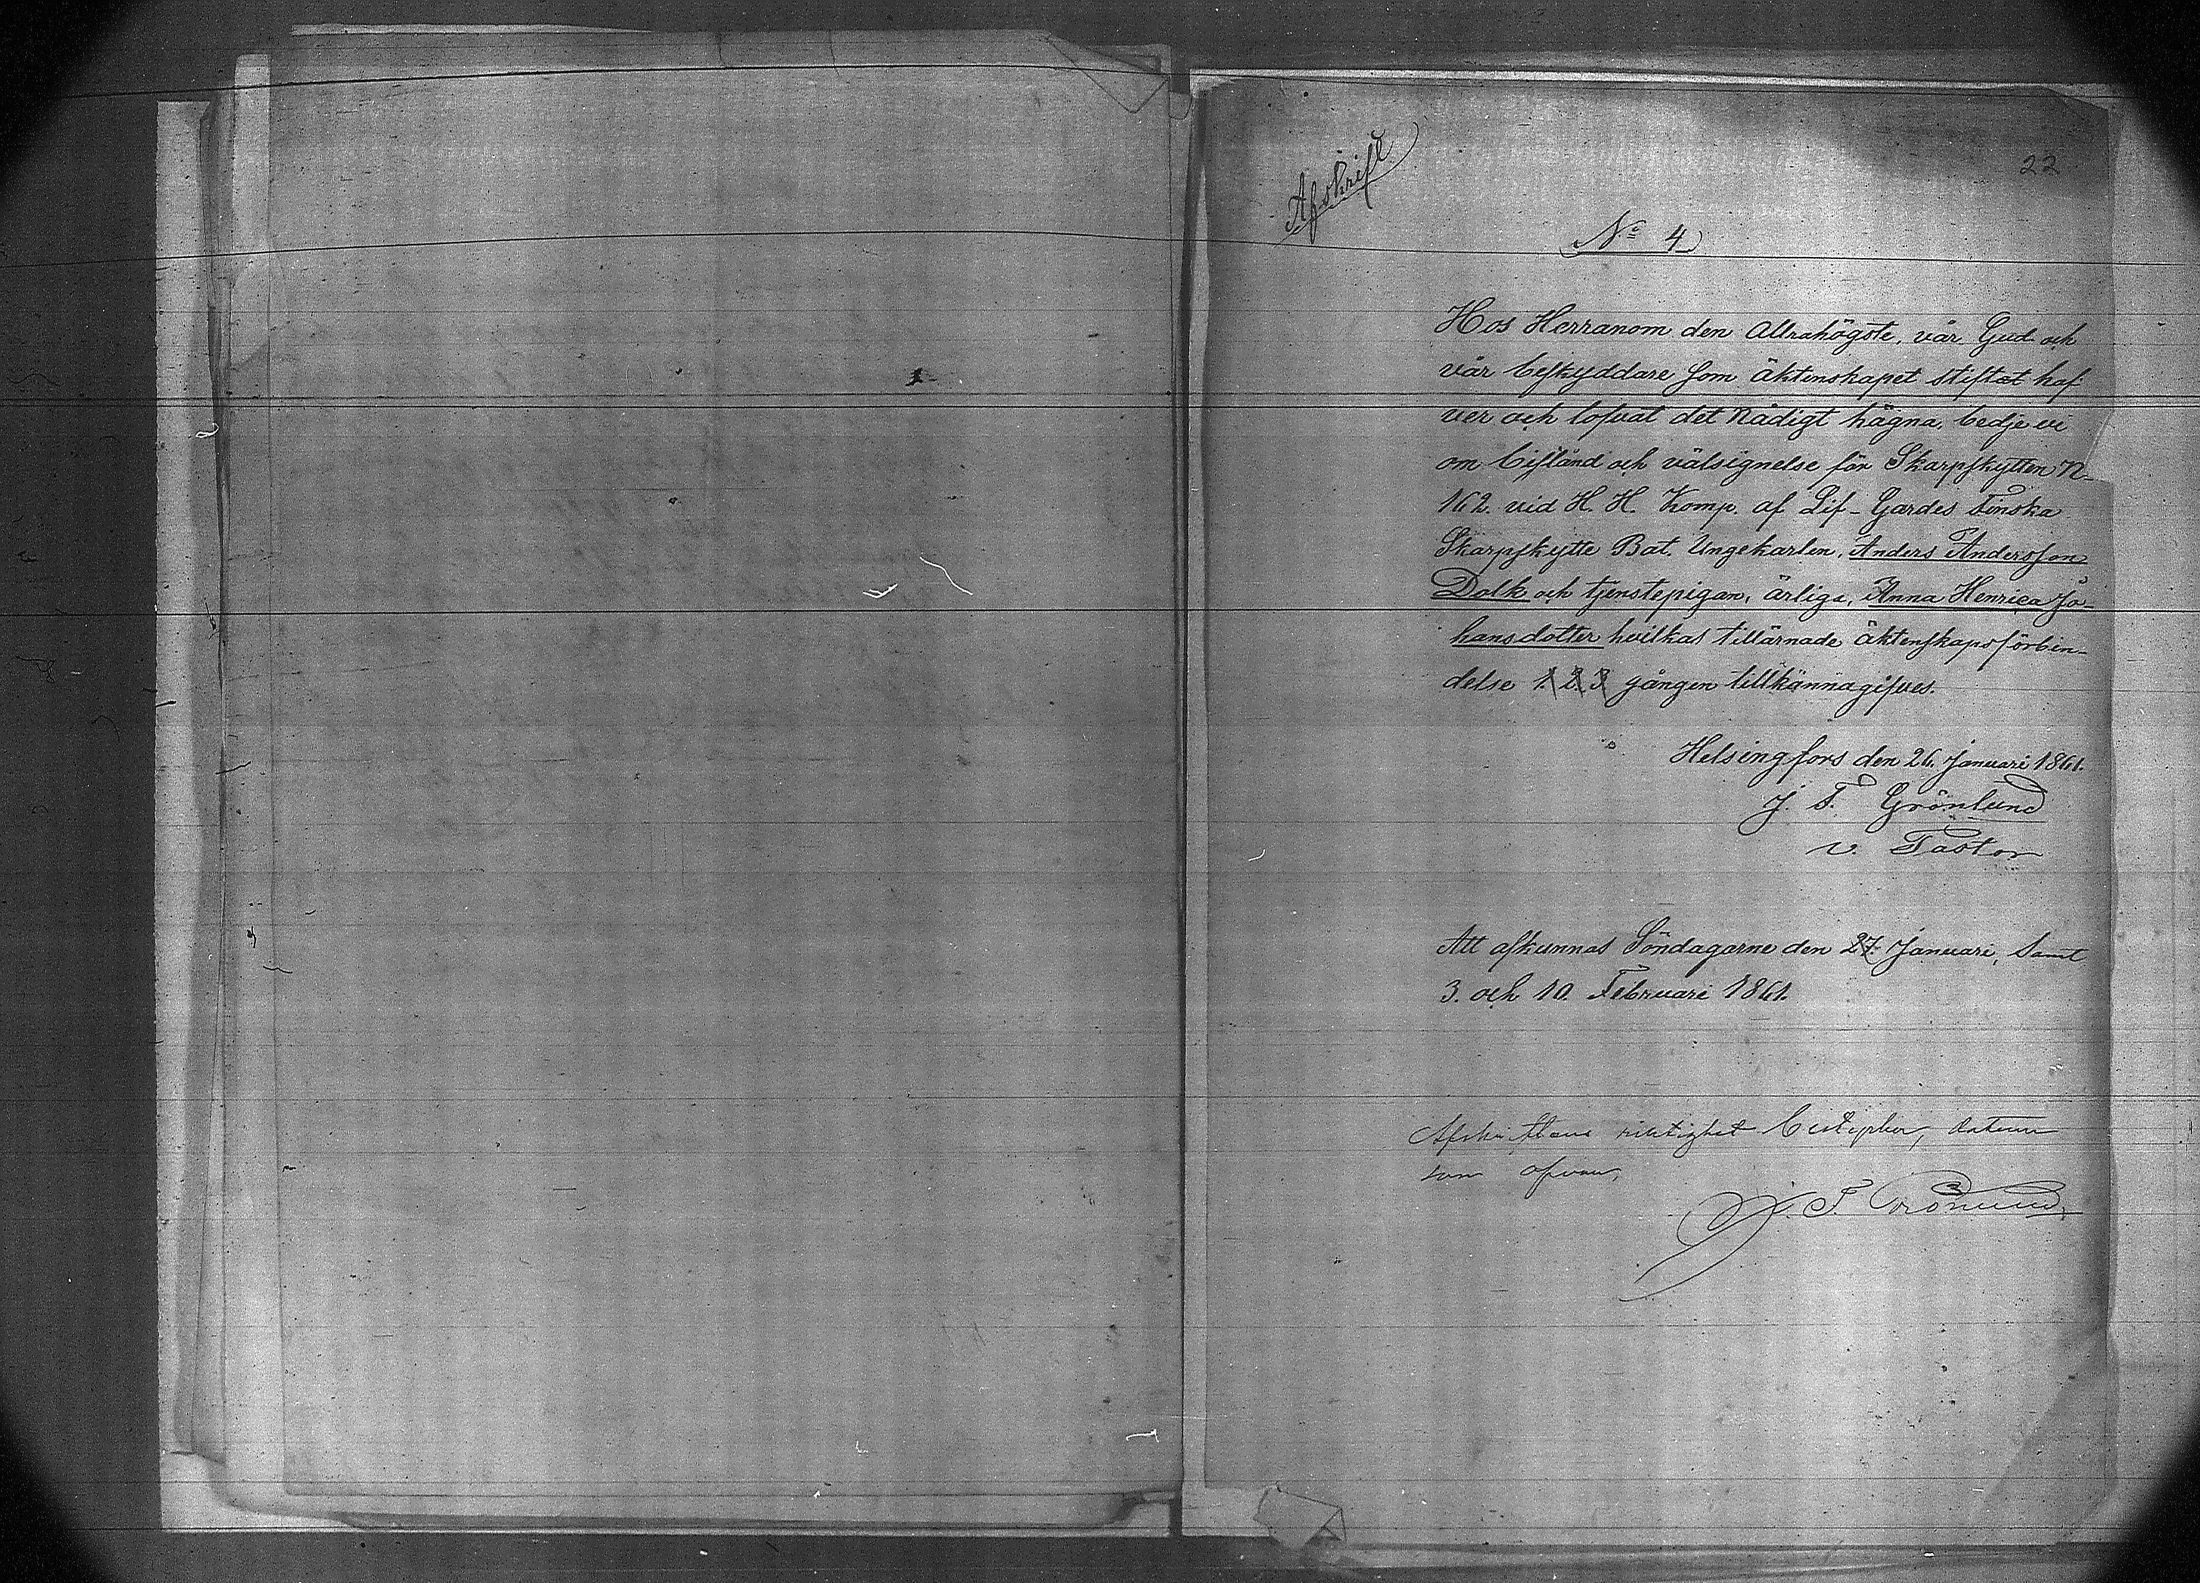 22
Afskrift
No 4
Hos Herranom den Allrahögste, vår Gud och
vår beskyddare som äktenskapet stiftat haf-
ver och lofvat det Nådigt hägna, bedje vi
om bistånd och välsignelse för Skarpskytten N-
162. vid H. H. Komp. af Lif-Gardes Finska
Skarpskytte Bat. Ungekarlen, Anders Andersson
Dolk och tjenstepigan, ärliga, Anna Henrica Jo-
hansdotter hvilkas tillärnade äktenskapsförbin-
delse 1. 2. 3 gången tillkännagifves.
Helsingfors den 26. Januari 1861.
J. F. Grönlund
v. Pastor
Att afkunnas Söndagarne den 27. Januari, samt
3. och 10. Februari 1861.
Afskriftens riktighet betygar, datum
som ofvan,
J. F. Grönlund